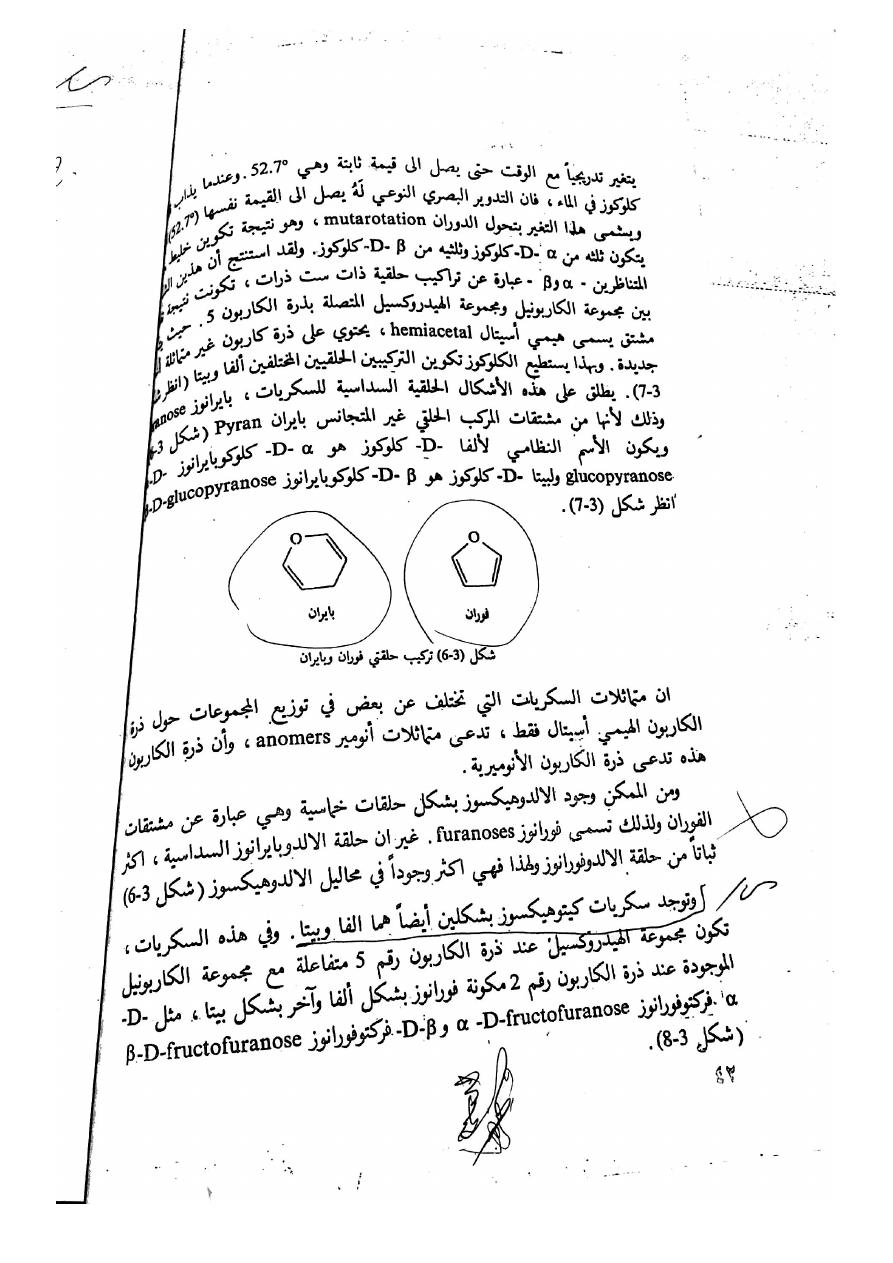 يتغير تدريجياً مع الوقت حتى يصل الى قيمة ثابتة وهي 52.7°. وعندما يذاب
كلوكوز في الماء ، فان التدوير البصري النوعي لَهُ يصل الى القيمة نفسها (52.7°)
ويسمى هذا التغير بتحول الدوران mutarotation ، وهو نتيجة تكوين خليط
يتكون ثلثه من D- α-كلوكوز وثلثيه من D- β-كلوكوز. ولقد استنتج أن هذين
المتناظرين - α وβ - عبارة عن تراكيب حلقية ذات ست ذرات ، تكونت نتيجة
بين مجموعة الكاربونيل ومجموعة الهيدروكسيل المتصلة بذرة الكاربون 5 . حيث
مشتق يسمى هيمي أسيتال hemiacetal ، يحتوي على ذرة كاربون غير متماثلة
جديدة . وبهذا يستطيع الكلوكوز تكوين التركيبين الحلقيين المختلفين ألفا وبيتا (انظر
3-7). يطلق على هذه الأشكال الحلقية السداسية للسكريات ، بايرانوز
وذلك لأنها من مشتقات المركب الحلقي غير المتجانس بايران Pyran (شكل
ويكون الأسم النظامي لألفا -D- كلوكوز هو D- α- كلوكوبايرانوز
glucopyranose ولبيتا -D- كلوكوز هو D- β-كلوكوبايرانوز D-glucopyranose
انظر شكل (3-7).
O
O
بايران
فوران
شكل (3-6) تركيب حلقتي فوران وبايران
ان متماثلات السكريات التي تختلف عن بعض في توزيع المجموعات حول ذرة
الكاربون الهيمي أسيتال فقط ، تدعى متماثلات أنومير anomers ، وأن ذرة الكاربون
هذه تدعى ذرة الكاربون الأنوميرية .
ومن الممكن وجود الالدوهيكسوز بشكل حلقات خماسية وهي عبارة عن مشتقات
الفوران ولذلك تسمى فورانوز furanoses . غير ان حلقة الالدوبايرانوز السداسية ، اكثر
ثباتاً من حلقة الالدوفورانوز ولهذا فهي اكثر وجوداً في محاليل الالدوهيكسوز (شكل 3-6)
وتوجد سكريات كيتوهيكسوز بشكلين أيضاً هما الفا وبيتا . وفي هذه السكريات ،
تكون مجموعة الهيدروكسيل عند ذرة الكاربون رقم 5 متفاعلة مع مجموعة الكاربونيل
الموجودة عند ذرة الكاربون رقم 2 مكونة فورانوز بشكل ألفا وآخر بشكل بيتا ، مثل -D-
α فركتوفورانوز α -D-fructofuranose و D-β-فركتوفورانوز β-D-fructofuranose
(شكل 3-8).
٤٣